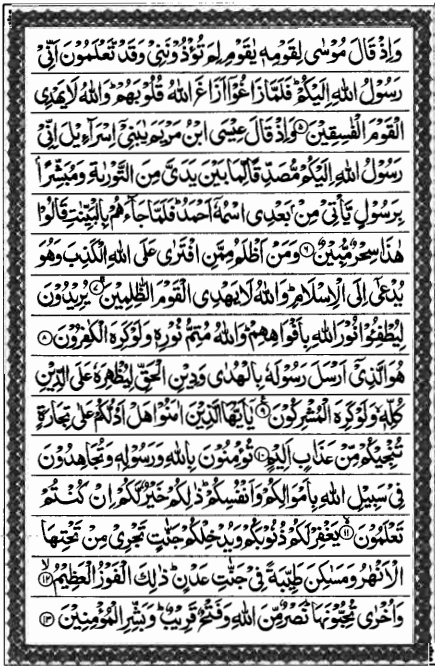 وَاِذْ قَالَ مُوْسٰى لِقَوْمِهٖ يٰقَوْمِ لِمَ تُؤْذُوْنَنِیْ وَقَدْ تَّعْلَمُوْنَ اَنِّیْ
رَسُوْلُ اللّٰهِ اِلَيْكُمْ فَلَمَّا زَاغُوْۤا اَزَاغَ اللّٰهُ قُلُوْبَهُمْ وَاللّٰهُ لَا يَهْدِى
الْقَوْمَ الْفٰسِقِيْنَ ۵ وَاِذْ قَالَ عِيْسَى ابْنُ مَرْيَمَ يٰبَنِیْۤ اِسْرَآءِيْلَ اِنِّیْ
رَسُوْلُ اللّٰهِ اِلَيْكُمْ مُّصَدِّقًا لِّمَا بَيْنَ يَدَىَّ مِنَ التَّوْرٰىةِ وَمُبَشِّرًۢا
بِرَسُوْلٍ يَّاْتِیْ مِنْۢ بَعْدِى اسْمُهٗۤ اَحْمَدُ ؕ فَلَمَّا جَآءَهُمْ بِالْبَيِّنٰتِ قَالُوْا
هٰذَا سِحْرٌ مُّبِيْنٌ ۶ وَمَنْ اَظْلَمُ مِمَّنِ افْتَرٰى عَلَى اللّٰهِ الْكَذِبَ وَهُوَ
يُدْعٰۤى اِلَى الْاِسْلَامِ ؕ وَاللّٰهُ لَا يَهْدِى الْقَوْمَ الظّٰلِمِيْنَ ۷ يُرِيْدُوْنَ
لِيُطْفِـُٔوْا نُوْرَ اللّٰهِ بِاَفْوَاهِهِمْ ؕ وَاللّٰهُ مُتِمُّ نُوْرِهٖ وَلَوْ كَرِهَ الْكٰفِرُوْنَ ۸
هُوَ الَّذِیْۤ اَرْسَلَ رَسُوْلَهٗ بِالْهُدٰى وَدِيْنِ الْحَقِّ لِيُظْهِرَهٗ عَلَى الدِّيْنِ
كُلِّهٖ وَلَوْ كَرِهَ الْمُشْرِكُوْنَ ۹ يٰۤاَيُّهَا الَّذِيْنَ اٰمَنُوْا هَلْ اَدُلُّكُمْ عَلٰى تِجَارَةٍ
تُنْجِيْكُمْ مِّنْ عَذَابٍ اَلِيْمٍ ۱۰ تُؤْمِنُوْنَ بِاللّٰهِ وَرَسُوْلِهٖ وَتُجَاهِدُوْنَ
فِیْ سَبِيْلِ اللّٰهِ بِاَمْوَالِكُمْ وَاَنْفُسِكُمْ ؕ ذٰلِكُمْ خَيْرٌ لَّكُمْ اِنْ كُنْتُمْ
تَعْلَمُوْنَ ۱۱ يَغْفِرْ لَكُمْ ذُنُوْبَكُمْ وَيُدْخِلْكُمْ جَنّٰتٍ تَجْرِىْ مِنْ تَحْتِهَا
الْاَنْهٰرُ وَمَسٰكِنَ طَيِّبَةً فِیْ جَنّٰتِ عَدْنٍ ؕ ذٰلِكَ الْفَوْزُ الْعَظِيْمُ ۱۲
وَاُخْرٰى تُحِبُّوْنَهَا ؕ نَصْرٌ مِّنَ اللّٰهِ وَفَتْحٌ قَرِيْبٌ ؕ وَبَشِّرِ الْمُؤْمِنِيْنَ ۱۳